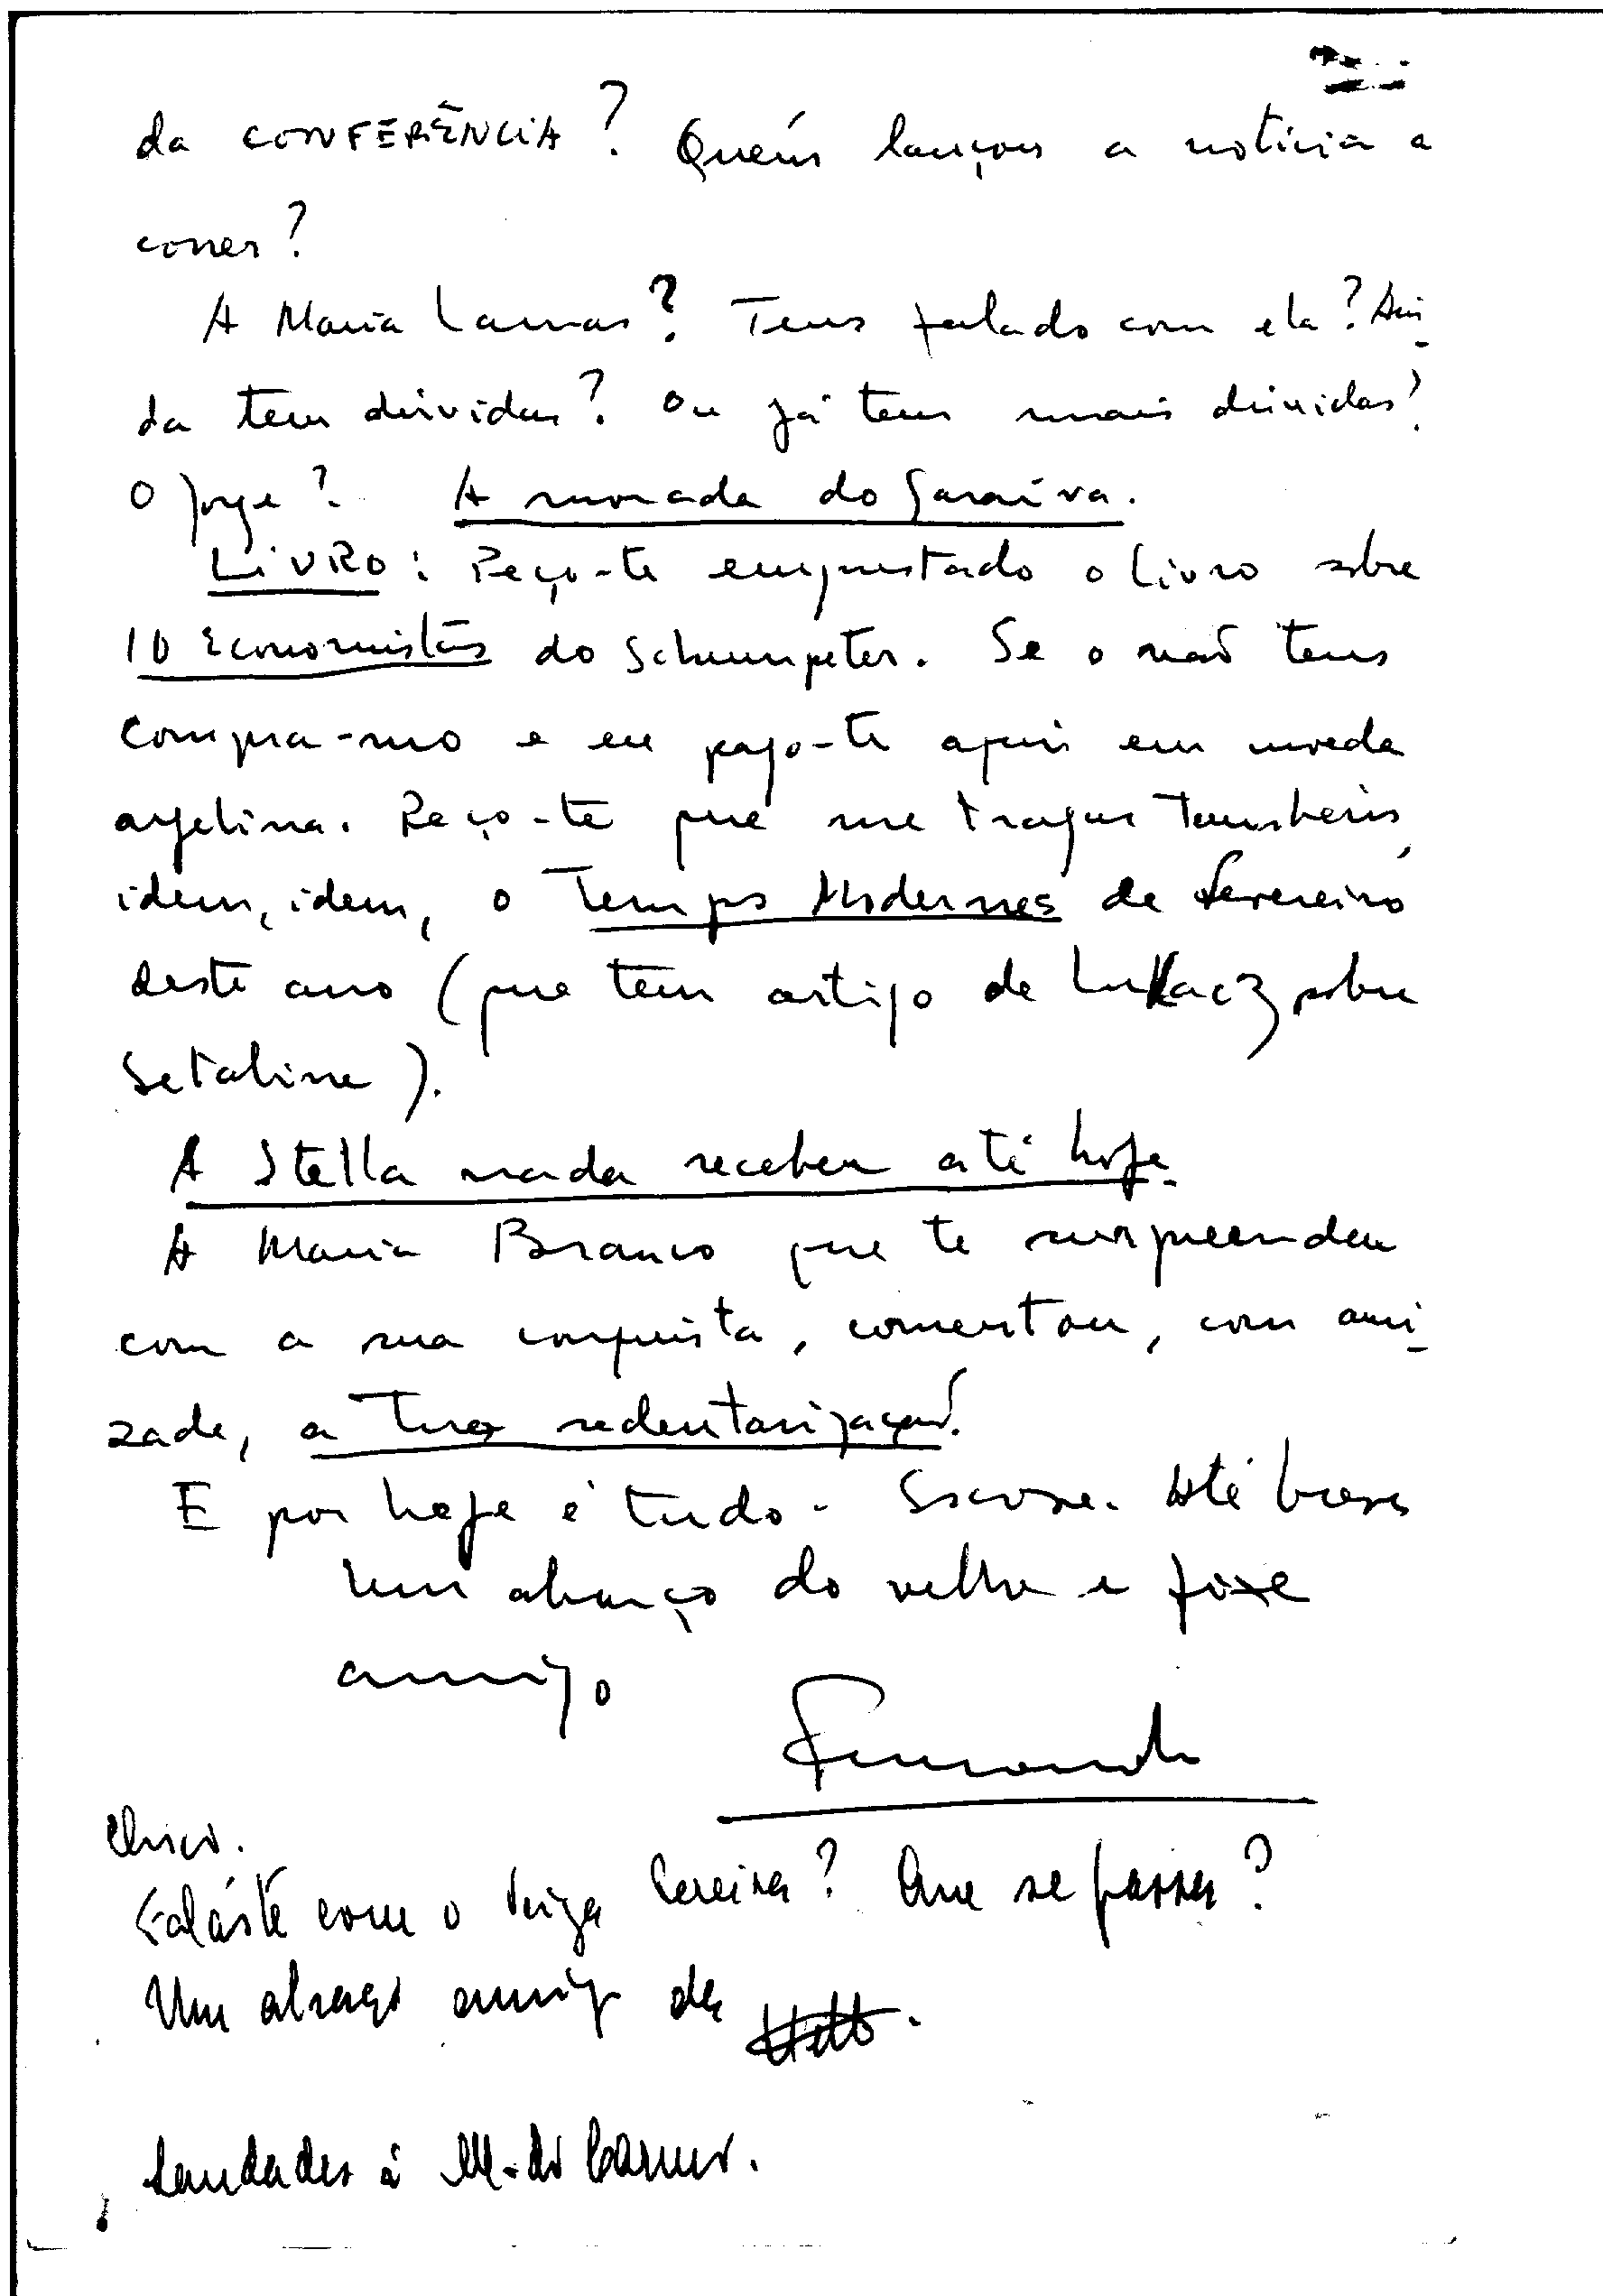 da CONFERÊNCIA? Quem lançou a notícia a
correr?
A Maria Lamas? Tens falado com ela? Ain-
da tem dúvidas? Ou já tem mais dúvidas?
O Jorge? A morada do Saraiva.
LIVRO: Peço-te emprestado o livro sobre
10 Economistas do Schumpeter. Se o não tens
compra-mo e eu pago-te aqui em moeda
argelina. Peço-te que me tragas também,
idem, idem, o Temps Modernes de Fevereiro
deste ano (que tem artigo de Lukacz sobre
Setaline).
A Stella nada recebeu até hoje.
A Maria Branco que te surpreendeu
com a sua conquista, comentou, com ami-
zade, a tua sedentarização.
E por hoje é tudo. Escreve. Até breve
Um abraço do velho e fixe
amigo
Fernando
Chico.
Faláste com o Veiga Pereira? Que se passa?
Um abraço amigo da
Saudades à M. do Carmo.